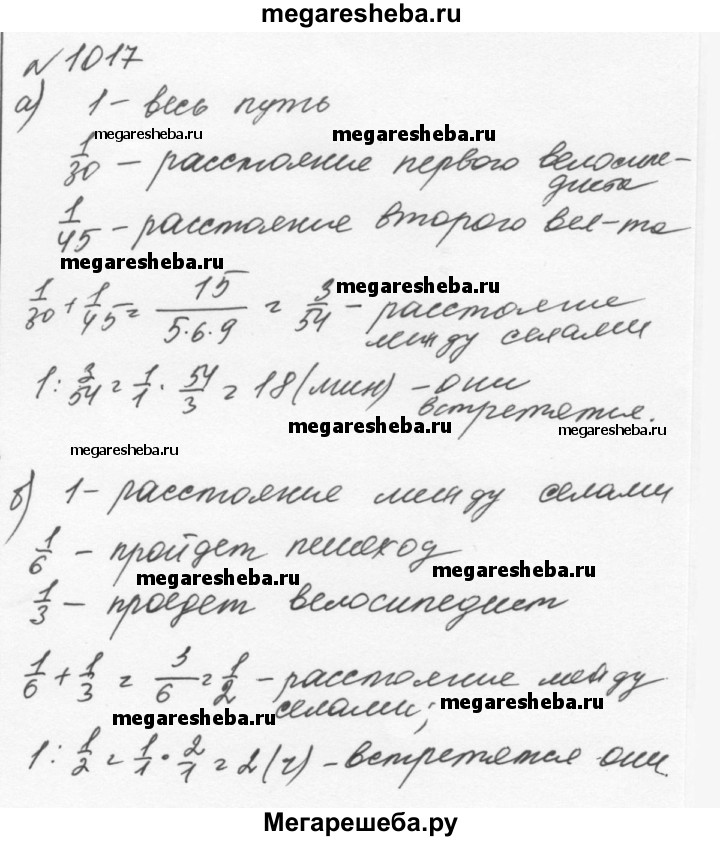 megaresheba.ru
№1017
а) 1 - весь путь
megaresheba.ru megaresheba.ru
1/30 - расстояние первого велосипе-
диста
1/45 - расстояние второго вел-та
megaresheba.ru
megaresheba.ru
1/30 + 1/45 = 15/(5·6·9) = 3/54 - расстояние
между селами
1 : 3/54 = 1/1 · 54/3 = 18 (мин) - они
встретятся.
megaresheba.ru
megaresheba.ru
megaresheba.ru
б) 1 - расстояние между селами
1/6 - пройдет пешеход
megaresheba.ru megaresheba.ru
1/3 - проедет велосипедист
1/6 + 1/3 = 3/6 = 1/2 - расстояние между
селами;
megaresheba.ru megaresheba.ru
1 : 1/2 = 1/1 · 2/1 = 2 (ч) - встретятся они.
Мегарешеба.ру